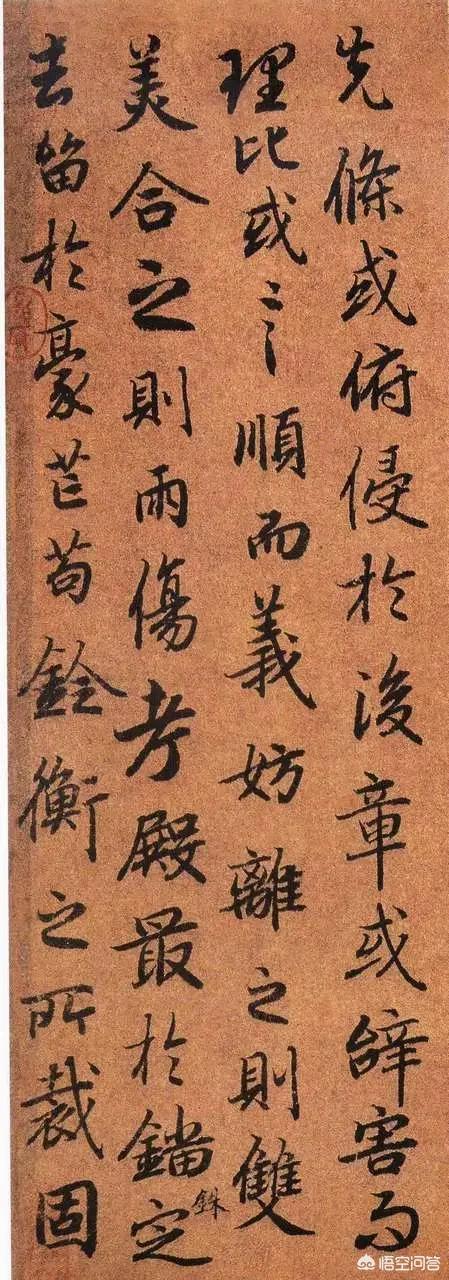 先條或俯侵於後章或辭害而
理比或言順而義妨離之則雙
美合之則兩傷考殿最於錙銖定
去留於豪芒苟銓衡之所裁固
悟空问答